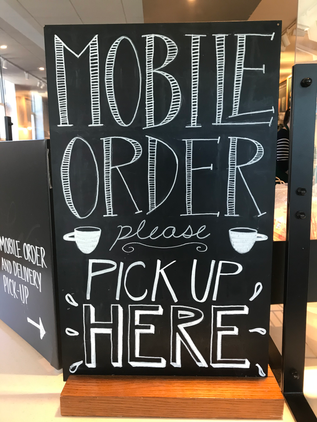 MOBILE
ORDER
please
PICK UP
HERE
MOBILE ORDER
AND DELIVERY
PICK-UP